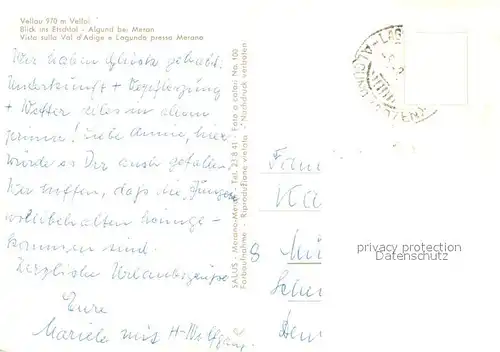 Vellau 970 m Velloi
Blick ins Etschtal - Algund bei Meran
Vista sulla Val d'Adige e Lagundo presso Merano
Wir haben Glück gehabt.
Unterkunft + Verpflegung
+ Wetter alles in allem
prima! Liebe Annie, hier
würde es Dir auch gefallen.
Wir hoffen, daß die Jungens
wohlbehalten heimge-
kommen sind.
Herzliche Urlaubsgrüße
Eure
Mariele mit H-Wolfgang
SALUS - Merano-Meran Tel. 23 8 41 - Foto a colori No. 100
Farbaufnahme - Riproduzione vietata - Nachdruck verboten
Fam
8
privacy protection
Datenschutz